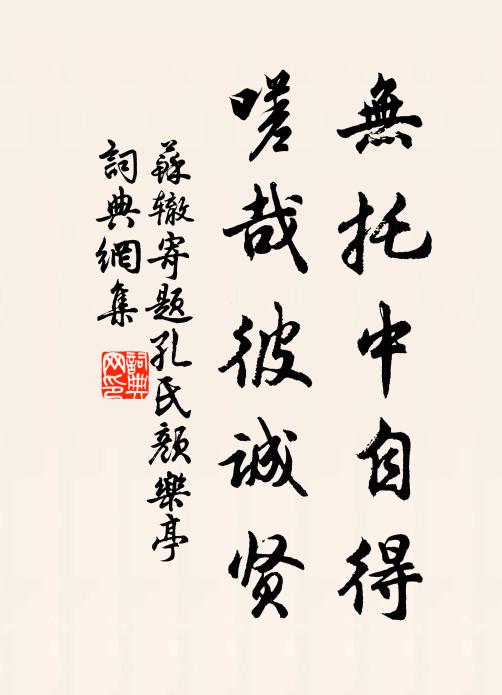 無托中自得
嗟哉彼诚贤
蘇辙寄题孔氏颜樂亭
詞典網集
詞典网印